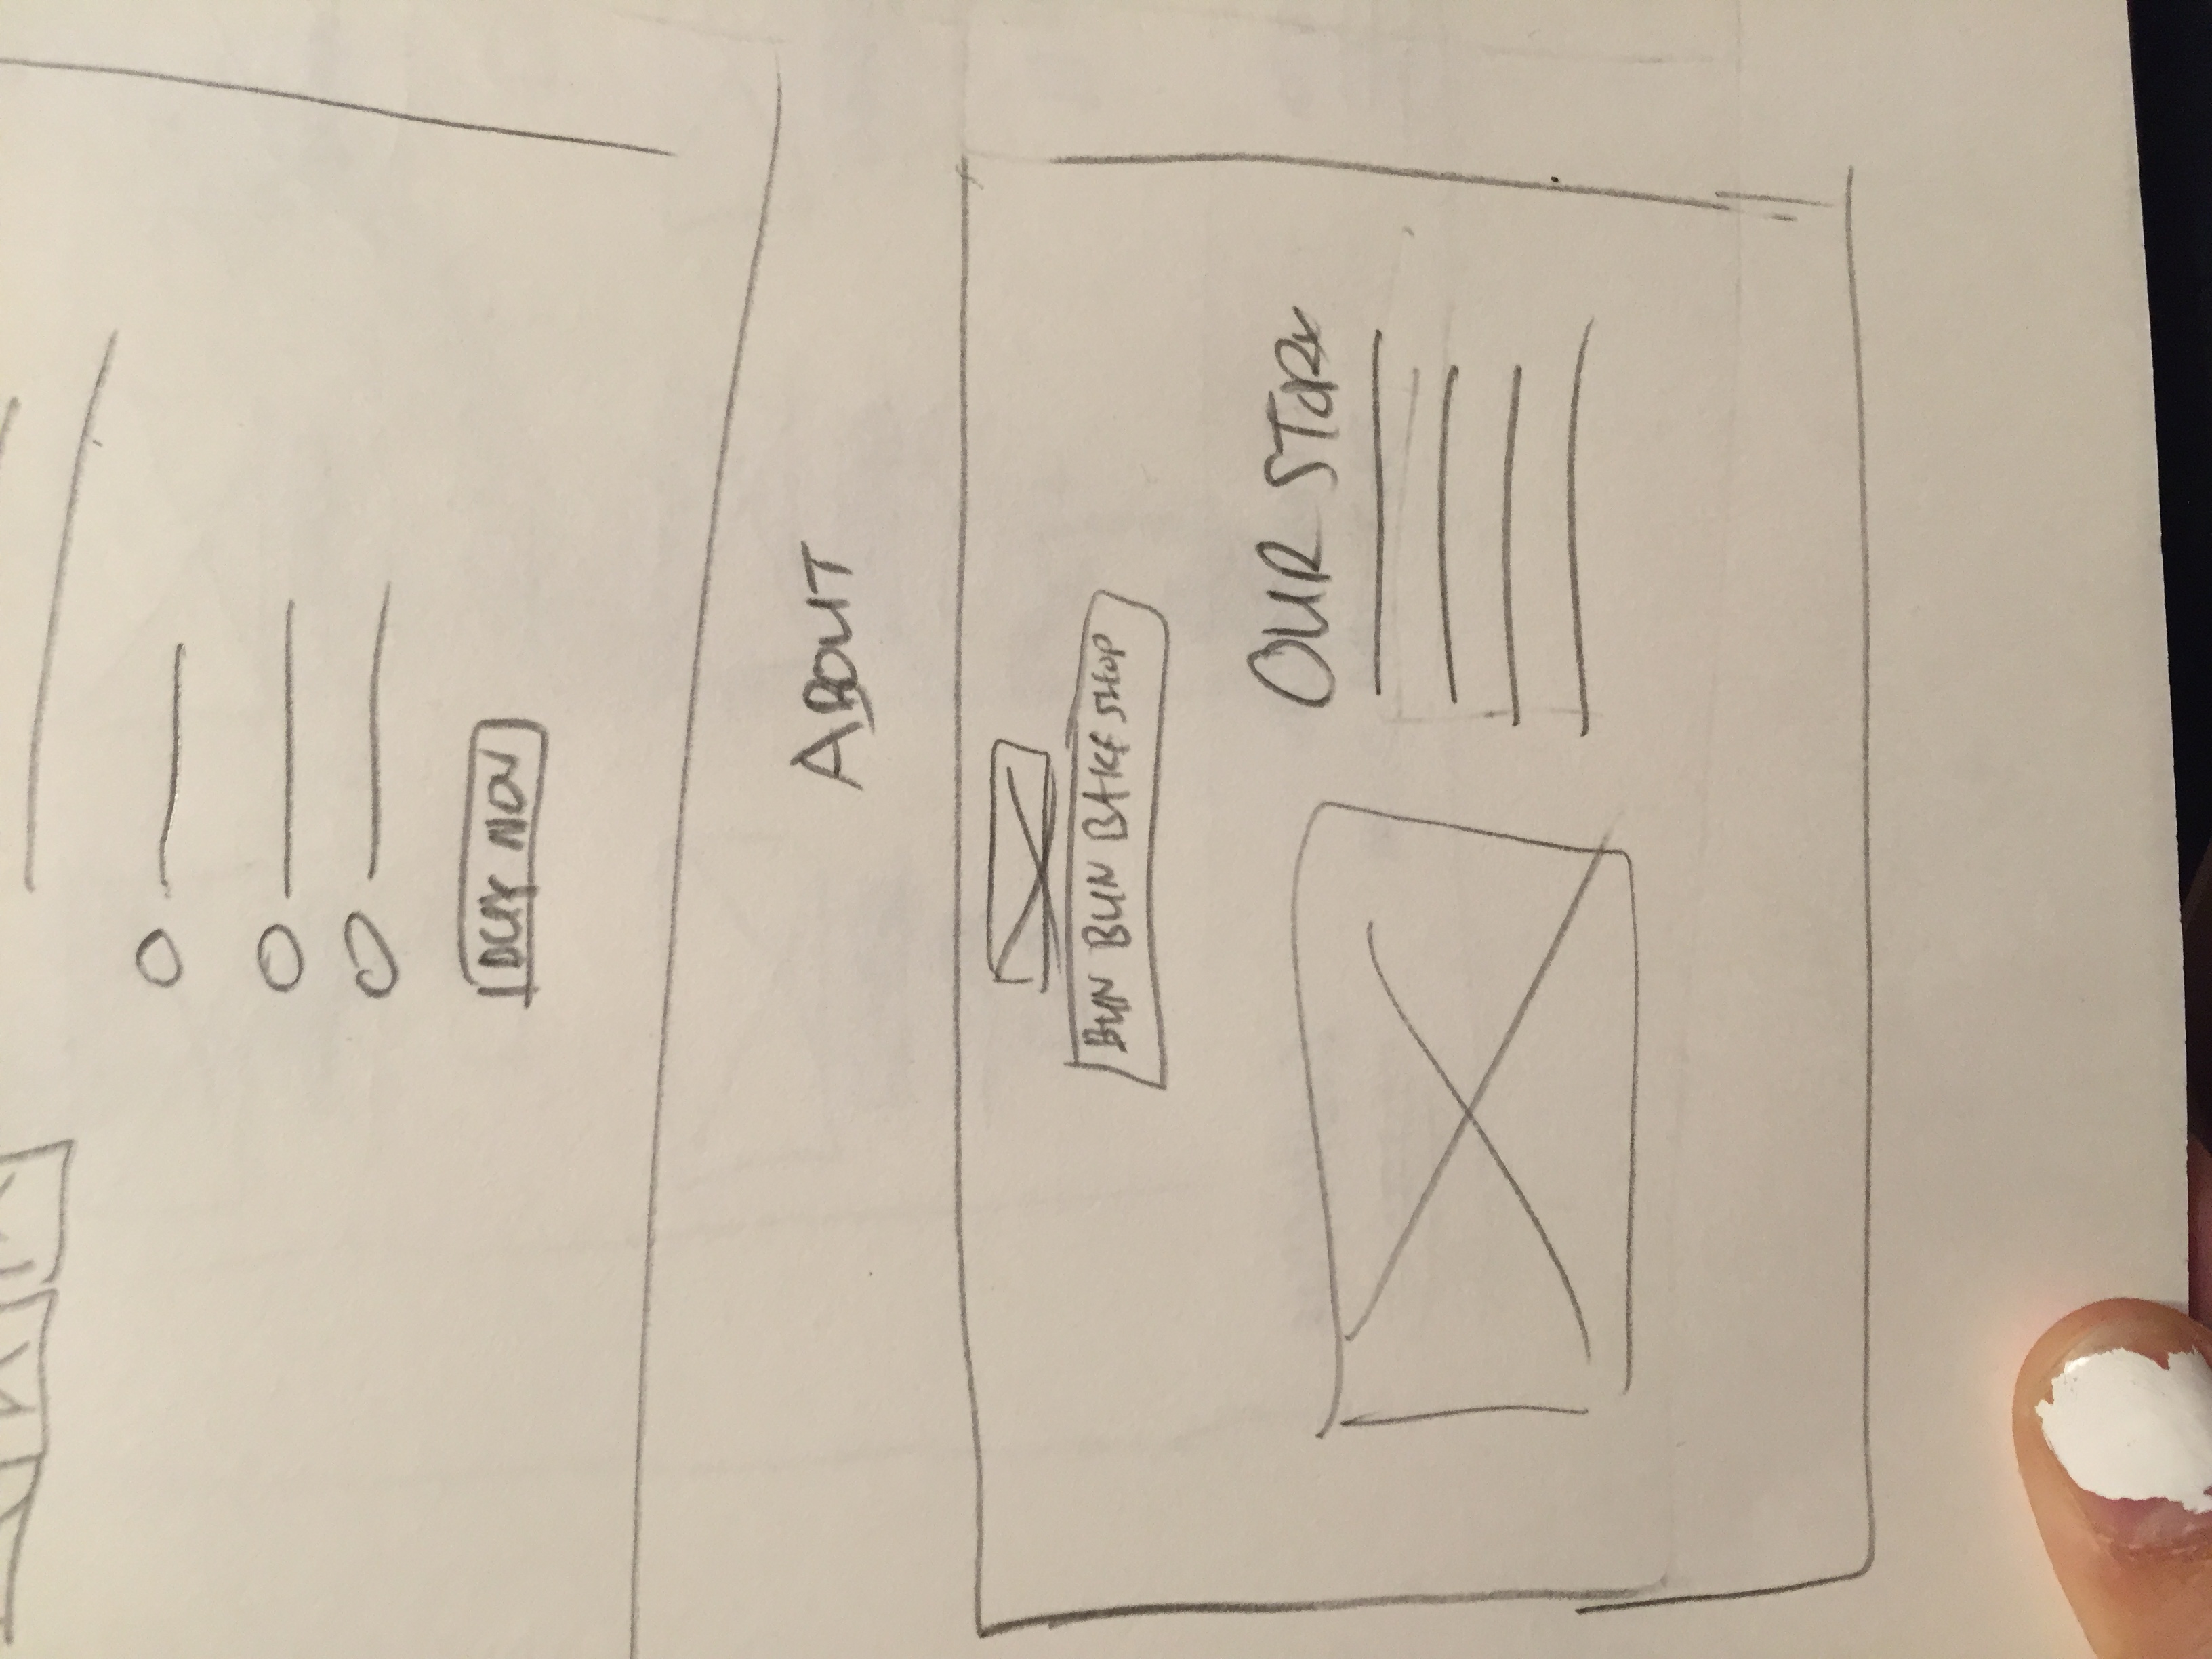 BUY NOW
ABOUT
BUN BUN BAKE SHOP
OUR STORY